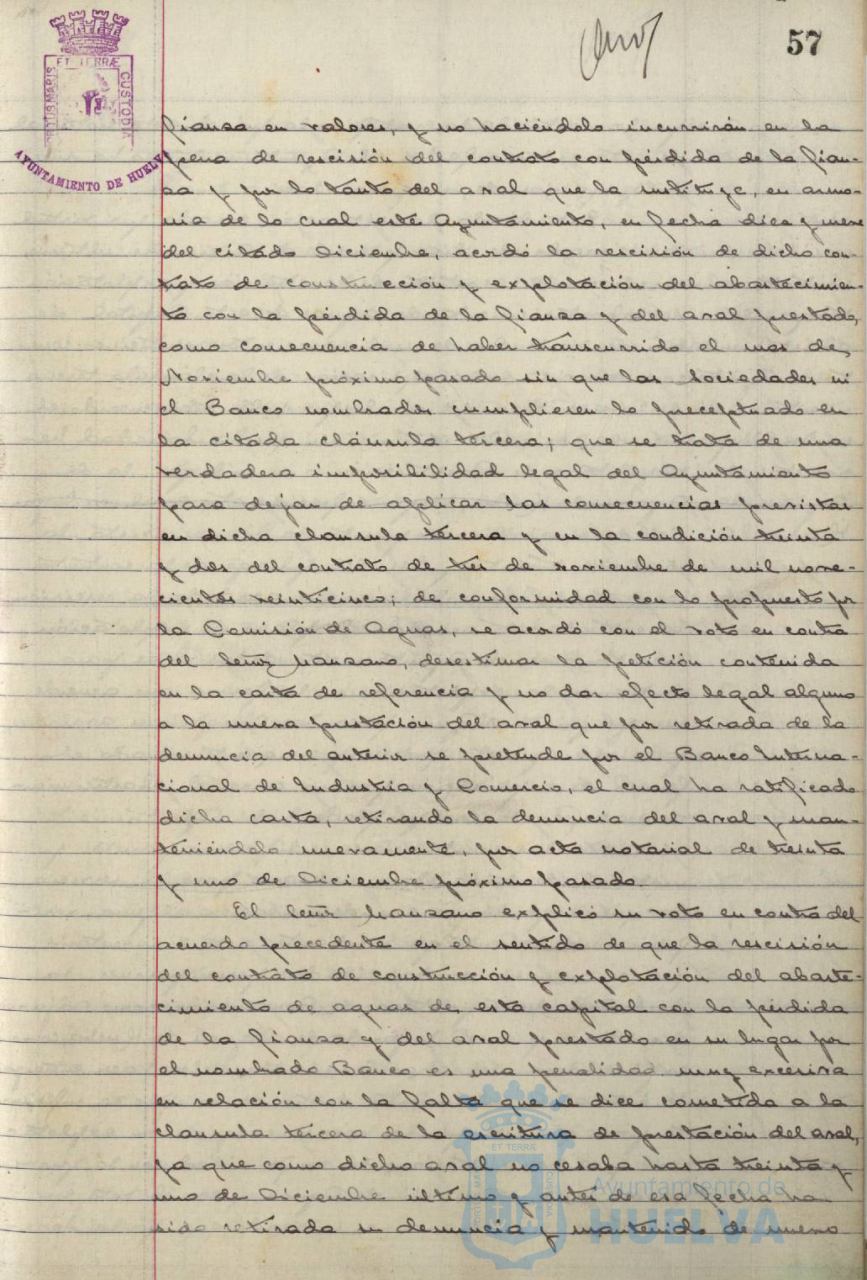 57
ET TERRÆ
PORTUS MARIS
CUSTODIA
AYUNTAMIENTO DE HUELV
fianza en valores, y no haciéndolo incurrirán en la
pena de rescisión del contrato con pérdida de la fian-
za y por lo tanto del aval que la sustituye, en armo-
nia de lo cual este Ayuntamiento, en fecha diez y nueve
del citado Diciembre, acordó la rescisión de dicho con-
trato de construcción y explotación del abastecimien-
to con la pérdida de la fianza y del aval prestado,
como consecuencia de haber transcurrido el mes de
Noviembre próximo pasado sin que las Sociedades ni
el Banco nombrados cumpliesen lo preceptuado en
la citada cláusula tercera; que se trata de una
verdadera imposibilidad legal del Ayuntamiento
para dejar de aplicar las consecuencias previstas
en dicha clausula tercera y en la condición treinta
y dos del contrato de tres de noviembre de mil nove-
cientos veinticinco; de conformidad con lo propuesto por
la Comisión de Aguas, se acordó con el voto en contra
del Señor Manzano, desestimar la petición contenida
en la carta de referencia y no dar efecto legal alguno
a la nueva prestación del aval que por retirada de la
denuncia del anterior se pretende por el Banco Interna-
cional de Industria y Comercio, el cual ha ratificado
dicha carta, retirando la denuncia del aval y man-
teniéndolo nuevamente, por acta notarial de treinta
y uno de Diciembre próximo pasado.
El Señor Manzano explicó su voto en contra del
acuerdo precedente en el sentido de que la rescisión
del contrato de construcción y explotación del abaste-
cimiento de aguas de esta capital con la pérdida
de la fianza y del aval prestado en su lugar por
el nombrado Banco es una penalidad muy excesiva
en relación con la falta que se dice cometida a la
clausula tercera de la escritura de prestación del aval,
ya que como dicho aval no cesaba hasta treinta y
uno de Diciembre último y antes de esa fecha ha
sido retirada su denuncia y mantenido de nuevo
Ayuntamiento de
HUELVA